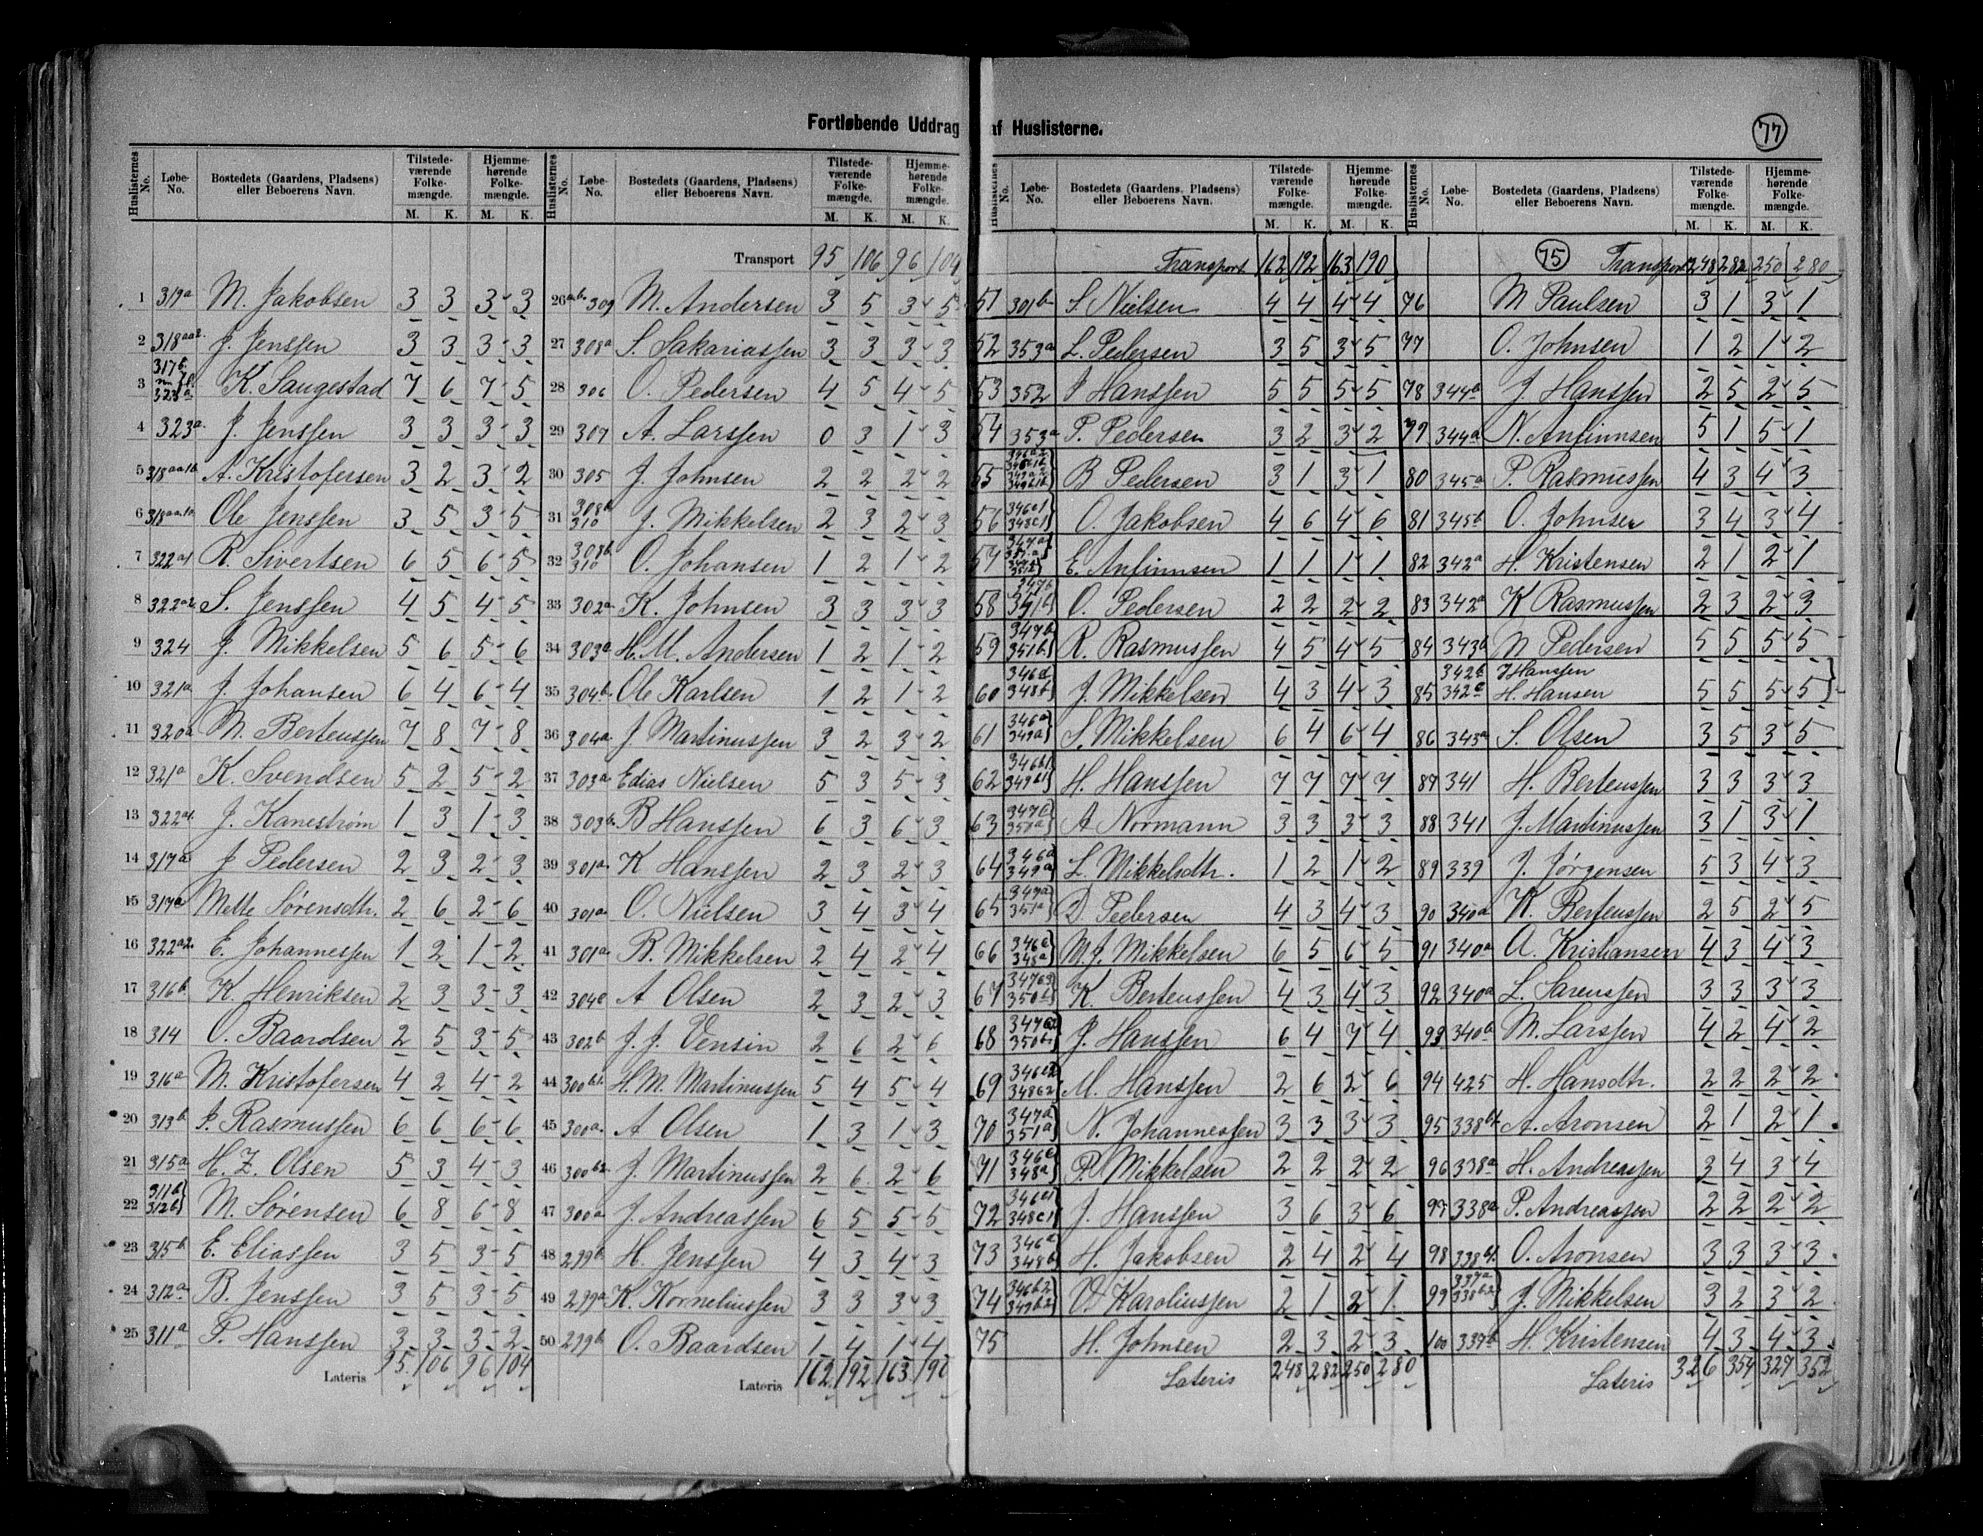 Fortløbende Uddrag af Huslisterne.
77
Huslisternes No. Løbe-No. Bostedets (Gaardens, Pladsens) eller Beboerens Navn. Tilstedeværende Folkemængde. M. K. Hjemmehørende Folkemængde. M. K.
1 319a M. Jakobsen 3 3 3 3
2 318aa2 J. Jenssen 3 3 3 3
3 317b K. Saugestad 7 6 7 5
4 323a J. Jenssen 3 3 3 3
5 318aa1b A. Kristofersen 3 2 3 2
6 318aa1a Ole Jenssen 3 5 3 5
7 322a1 R. Sivertsen 6 5 6 5
8 322a2 S. Jenssen 4 5 4 5
9 324 J. Mikkelsen 5 6 5 6
10 321a J. Johansen 6 4 6 4
11 320a M. Berteussen 7 8 7 8
12 321a K. Svendsen 5 2 5 2
13 322a1 J. Kanestrøm 1 3 1 3
14 317a J. Pedersen 2 3 2 3
15 317a Mette Sørensdh. 2 6 2 6
16 322a2 E. Johannessen 1 2 1 2
17 316b K. Henriksen 2 3 3 3
18 314 O. Baardsen 2 5 3 5
19 316a M. Kristofersen 4 2 4 2
20 313b P. Rasmussen 6 6 6 6
21 315a H. Z. Olsen 5 3 4 3
22 311b 312b M. Sørensen 6 8 6 8
23 315b E. Eliassen 3 5 3 5
24 312a B. Jenssen 3 5 3 5
25 311a P. Hanssen 3 3 3 2
Lateris 95 106 96 104
Huslisternes No. Løbe-No. Bostedets (Gaardens, Pladsens) eller Beboerens Navn. Tilstedeværende Folkemængde. M. K. Hjemmehørende Folkemængde. M. K.
Transport 95 106 96 104
26 309 M. Andersen 3 5 3 5
27 308a S. Sakariassen 3 3 3 3
28 306 O. Pedersen 4 5 4 5
29 309 A. Larssen 0 3 1 3
30 305 J. Johnsen 2 2 2 2
31 308a 310 J. Mikkelsen 2 3 2 3
32 308b 310 O. Johansen 1 2 1 2
33 302a K. Johnsen 3 3 3 3
34 303a H. M. Andersen 1 2 1 2
35 304b Ole Karlsen 1 2 1 2
36 304a J. Martinussen 3 2 3 2
37 303a Edias Nielsen 5 3 5 3
38 303b B Hanssen 6 3 6 3
39 301a K Hanssen 2 3 2 3
40 301a O. Nielsen 3 4 3 4
41 301a B. Mikkelsen 2 4 2 4
42 304c A Olsen 2 3 2 3
43 302b J. J. Vensin 2 6 2 6
44 300b1 H. M. Martinussen 5 4 5 4
45 300a A Olsen 1 3 1 3
46 300b2 J. Martinussen 2 6 2 6
47 300a J. Andreassen 6 5 5 5
48 299b H. Jenssen 4 3 4 3
49 299a K. Korneliussen 3 3 3 3
50 299b O. Baardsen 1 4 1 4
Lateris 162 192 163 190
Huslisternes No. Løbe-No. Bostedets (Gaardens, Pladsens) eller Beboerens Navn. Tilstedeværende Folkemængde. M. K. Hjemmehørende Folkemængde. M. K.
Transport 162 192 163 190
51 301b S. Nielsen 4 4 4 4
52 353a L. Pedersen 3 5 3 5
53 352 P Hanssen 5 5 5 5
54 353a P. Pedersen 3 2 3 2
55 B Pedersen 3 1 3 1
56 346c1 348c1 O. Jakobsen 4 6 4 6
57 E. Anfinnsen 1 1 1 1
58 347b 351b O. Pedersen 2 2 2 2
59 347b 351b R. Rasmussen 4 5 4 5
60 346d 348b J. Mikkelsen 4 3 4 3
61 346a 349a S. Mikkelsen 6 4 6 4
62 346b1 349b1 H. Hanssen 7 7 7 7
63 347c 350a A Normann 3 3 3 3
64 346a 349a L. Mikkelsdtr. 1 2 1 2
65 347a 351a D. Pedersen 4 3 4 3
66 346c 348a M. J. Mikkelsen 6 5 6 5
67 350b K. Berteussen 4 3 4 3
68 347c2 350b J. Hanssen 6 4 7 4
69 346c2 348c2 M. Hanssen 2 6 2 6
70 347a 351a N. Johannessen 3 3 3 3
71 346c 348a P. Mikkelsen 2 2 2 2
72 346c1 348c1 J. Hanssen 3 6 3 6
73 346a 348b H. Jakobsen 2 4 2 4
74 346b2 349b2 O. Karoliussen 2 1 2 1
75 H. Johnsen 2 3 2 3
Lateris 248 282 250 280
Huslisternes No. Løbe-No. Bostedets (Gaardens, Pladsens) eller Beboerens Navn. Tilstedeværende Folkemængde. M. K. Hjemmehørende Folkemængde. M. K.
75 Transport 248 282 250 280
76 M Paulsen 3 1 3 1
77 O. Johnsen 1 2 1 2
78 344b J. Hanssen 2 5 2 5
79 344a N. Anfinnsen 5 1 5 1
80 345a P. Rasmussen 4 3 4 3
81 345b O. Johnsen 3 4 3 4
82 342a H. Kristensen 2 1 2 1
83 342a K Rasmussen 2 3 2 3
84 343b N Pedersen 5 5 5 5
342b J Hanssen
85 342c H. Hansen 5 5 5 5
86 343a S. Olsen 3 5 3 5
87 341 H. Berteussen 3 3 3 3
88 341 J. Martinussen 3 1 3 1
89 339 J. Jørgensen 5 3 4 3
90 340a K. Berteussen 2 5 2 5
91 340a A. Kristiansen 4 3 4 3
92 340a L. Sarenssen 3 3 3 3
93 340b M. Larssen 4 2 4 2
94 425 H. Hansdtr. 2 2 2 2
95 338b1 A. Aronsen 2 1 2 1
96 338a H. Andreassen 3 4 3 4
97 338a P. Andreassen 2 2 2 2
98 338b1 O. Aronsen 3 3 3 3
99 337a 338b2 J. Mikkelsen 3 2 3 2
100 337b H. Kristensen 4 3 4 3
Lateris 326 354 327 352